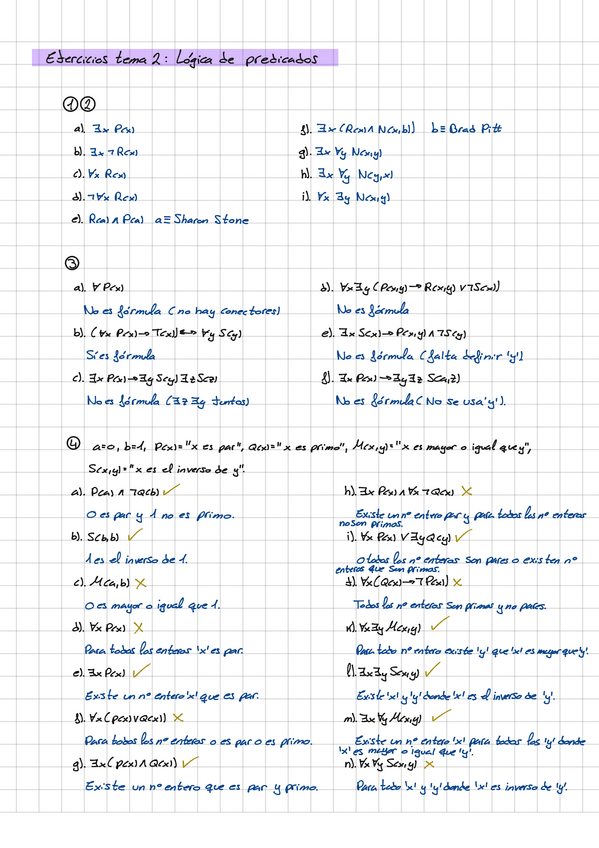 Ejercicios tema 2: Lógica de predicados
① ②
a). ∃x P(x)
b). ∃x ¬R(x)
c). ∀x R(x)
d). ¬∀x R(x)
e). R(a) ∧ P(a) a ≡ Sharon Stone
f). ∃x (R(x) ∧ N(x,b)) b ≡ Brad Pitt
g). ∃x ∀y N(x,y)
h). ∃x ∀y N(y,x)
i). ∀x ∃y N(x,y)
③
a). ∀ P(x)
No es fórmula (no hay conectores)
b). (∀x P(x) → T(x)) ↔ ∀y S(y)
Sí es fórmula
c). ∃x P(x) → ∃y S(y) ∃z S(z)
No es fórmula (∃z ∃y juntos)
d). ∀x ∃y (P(x,y) → R(x,y) ∨ ¬S(x))
No es fórmula
e). ∃x S(x) → P(x,y) ∧ ¬S(y)
No es fórmula (falta definir 'y')
f). ∃x P(x) → ∃y ∃z S(a,z)
No es fórmula (No se usa 'y').
④ a=0, b=1, P(x)="x es par", Q(x)="x es primo", M(x,y)="x es mayor o igual que y",
S(x,y)="x es el inverso de y".
a). P(a) ∧ ¬Q(b) ✓
0 es par y 1 no es primo.
b). S(b,b) ✓
1 es el inverso de 1.
c). M(a,b) ✗
0 es mayor o igual que 1.
d). ∀x P(x) ✗
Para todos los enteros 'x' es par.
e). ∃x P(x) ✓
Existe un nº entero 'x' que es par.
f). ∀x (P(x) ∨ Q(x)) ✗
Para todos los nº enteros o es par o es primo.
g). ∃x (P(x) ∧ Q(x)) ✓
Existe un nº entero que es par y primo.
h). ∃x P(x) ∧ ∀x ¬Q(x) ✗
Existe un nº entero par y para todos los nº enteros
no son primos.
i). ∀x P(x) ∨ ∃y Q(y) ✓
O todos los nº enteros son pares o existen nº
enteros que son primos.
j). ∀x (Q(x) → ¬P(x)) ✗
Todos los nº enteros son primos y no pares.
k). ∀x ∃y M(x,y) ✓
Para todo nº entero existe 'y' que 'x' es mayor que 'y'.
l). ∃x ∃y S(x,y) ✓
Existe 'x' y 'y' donde 'x' es el inverso de 'y'.
m). ∃x ∀y M(x,y) ✓
Existe un nº entero 'x' para todos los 'y' donde
'x' es mayor o igual que 'y'.
n). ∀x ∀y S(x,y) ✗
Para todo 'x' y 'y' donde 'x' es inverso de 'y'.